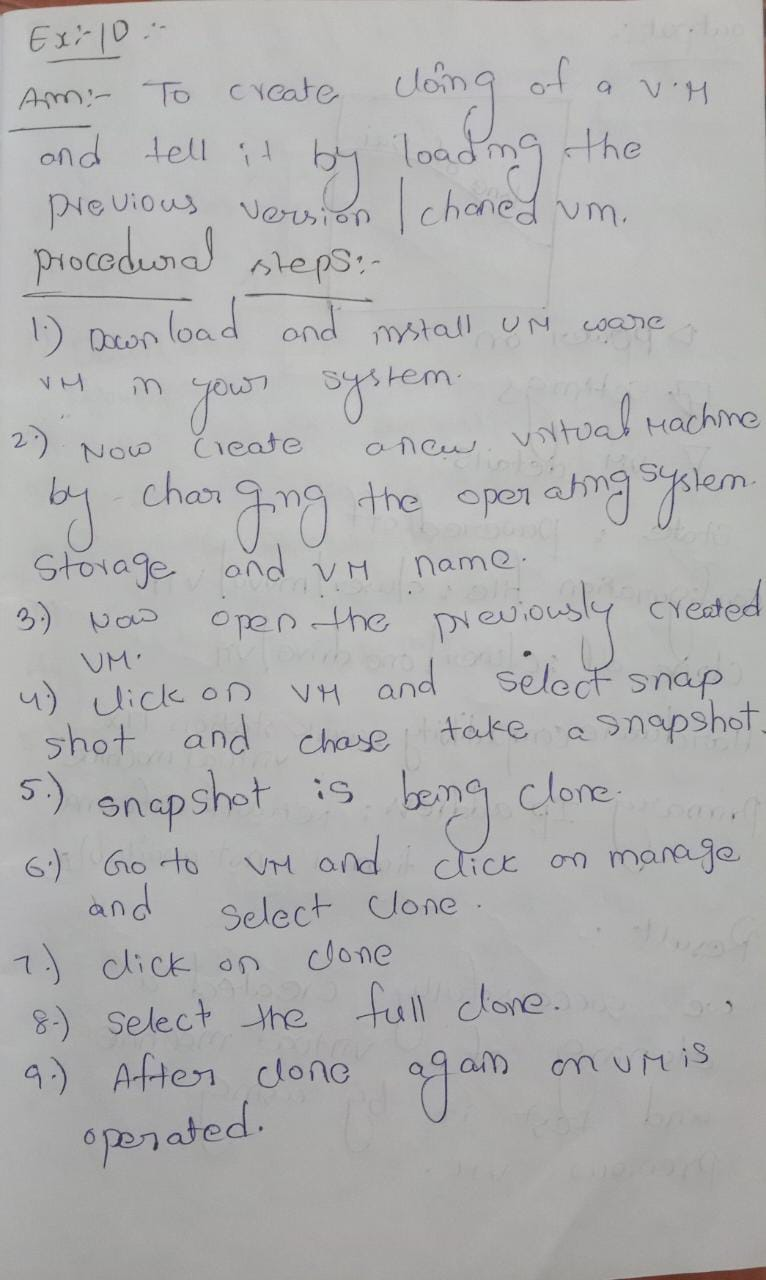 Ex:-10 :-
Aim:- To create cloing of a V.M
and tell it by loading the
previous version / chaned vm.
procedural steps:-
1.) Download and install VM ware
VM in your system.
2.) Now create a new virtual Machine
by charging the operating system.
storage and VM name.
3.) Now open the previously created
VM.
4.) click on VM and select snap
shot and chose take a snapshot.
5.) snapshot is being clone.
6.) Go to VM and click on manage
and select clone.
7.) click on clone
8.) select the full clone.
9.) After clone again on VM is
operated.